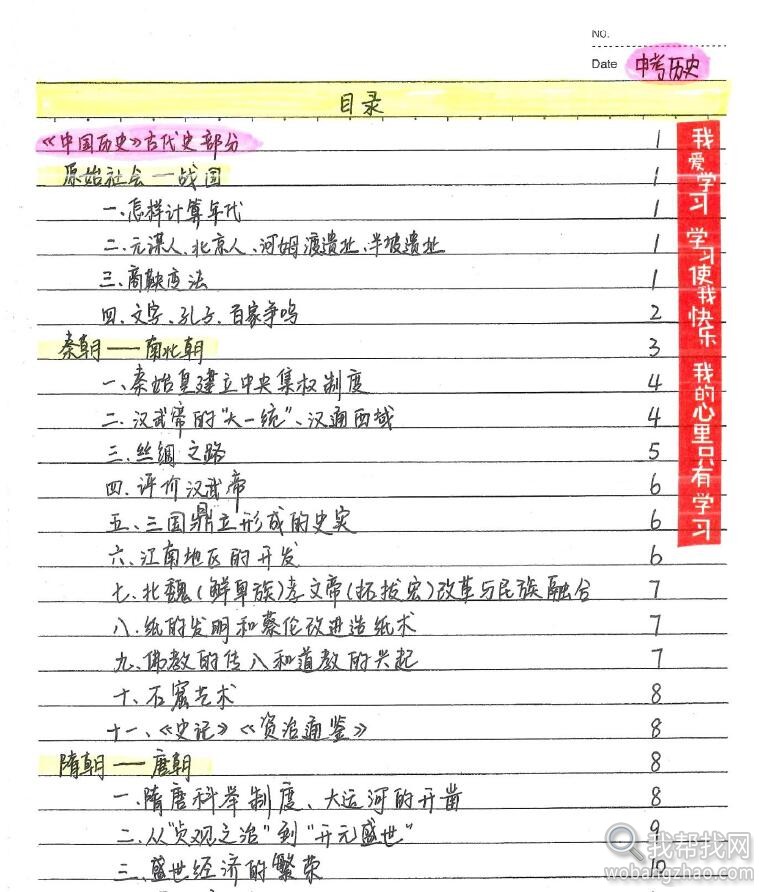 NO.
Date 中考历史
目录
《中国历史》古代史部分 1
原始社会——战国 1
一、怎样计算年代 1
二、元谋人、北京人、河姆渡遗址、半坡遗址 1
三、商鞅变法 1
四、文字、孔子、百家争鸣 2
秦朝——南北朝 3
一、秦始皇建立中央集权制度 4
二、汉武帝的"大一统"、汉通西域 4
三、丝绸之路 5
四、评价汉武帝 6
五、三国鼎立形成的史实 6
六、江南地区的开发 6
七、北魏(鲜卑族)孝文帝(拓拔宏)改革与民族融合 7
八、纸的发明和蔡伦改进造纸术 7
九、佛教的传入和道教的兴起 7
十、石窟艺术 8
十一、《史记》《资治通鉴》 8
隋朝——唐朝 8
一、隋唐科举制度、大运河的开凿 8
二、从"贞观之治"到"开元盛世" 9
三、盛世经济的繁荣 10
我爱学习 学习使我快乐 我的心里只有学习
我帮找网
wobangzhao.com